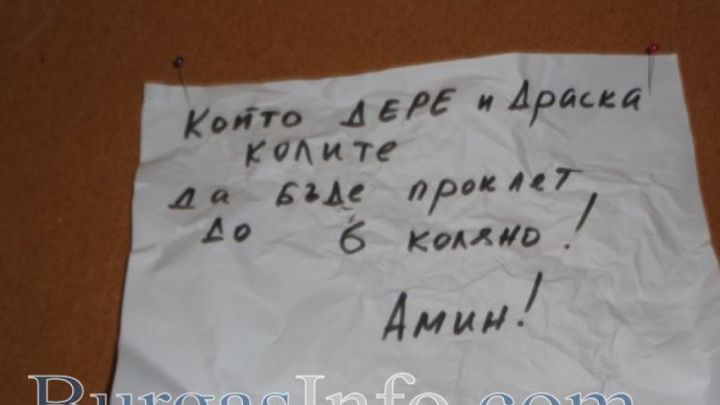 Който ДЕРЕ и Драска
колите
да бъде проклет
до 6 коляно!
Амин!
BurgasInfo.com